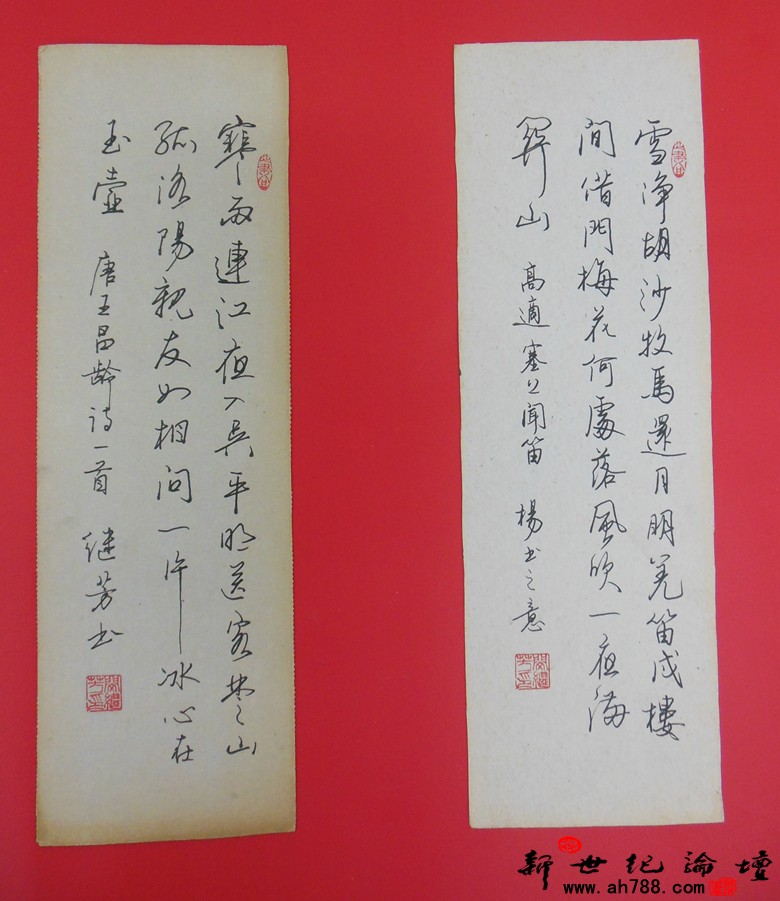 雪净胡沙牧馬還月明羌笛戍樓
間借問梅花何處落風吹一夜滿
關山 高適塞上聞笛 楊书之意
寒雨連江夜入吳平明送客楚山
孤洛陽親友如相问一片冰心在
玉壺 唐王昌齡诗一首 继芳书
新世纪論壇
www.ah788.com